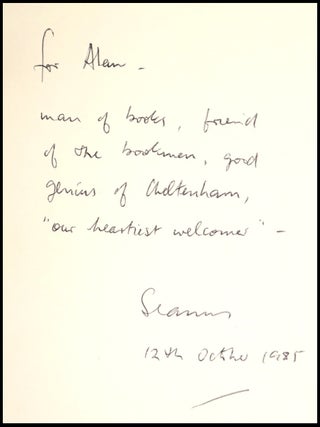 for Alan -
man of books, friend
of the bookmen, good
genius of Cheltenham,
"our heartiest welcomer" -
Seamus
12th October 1985